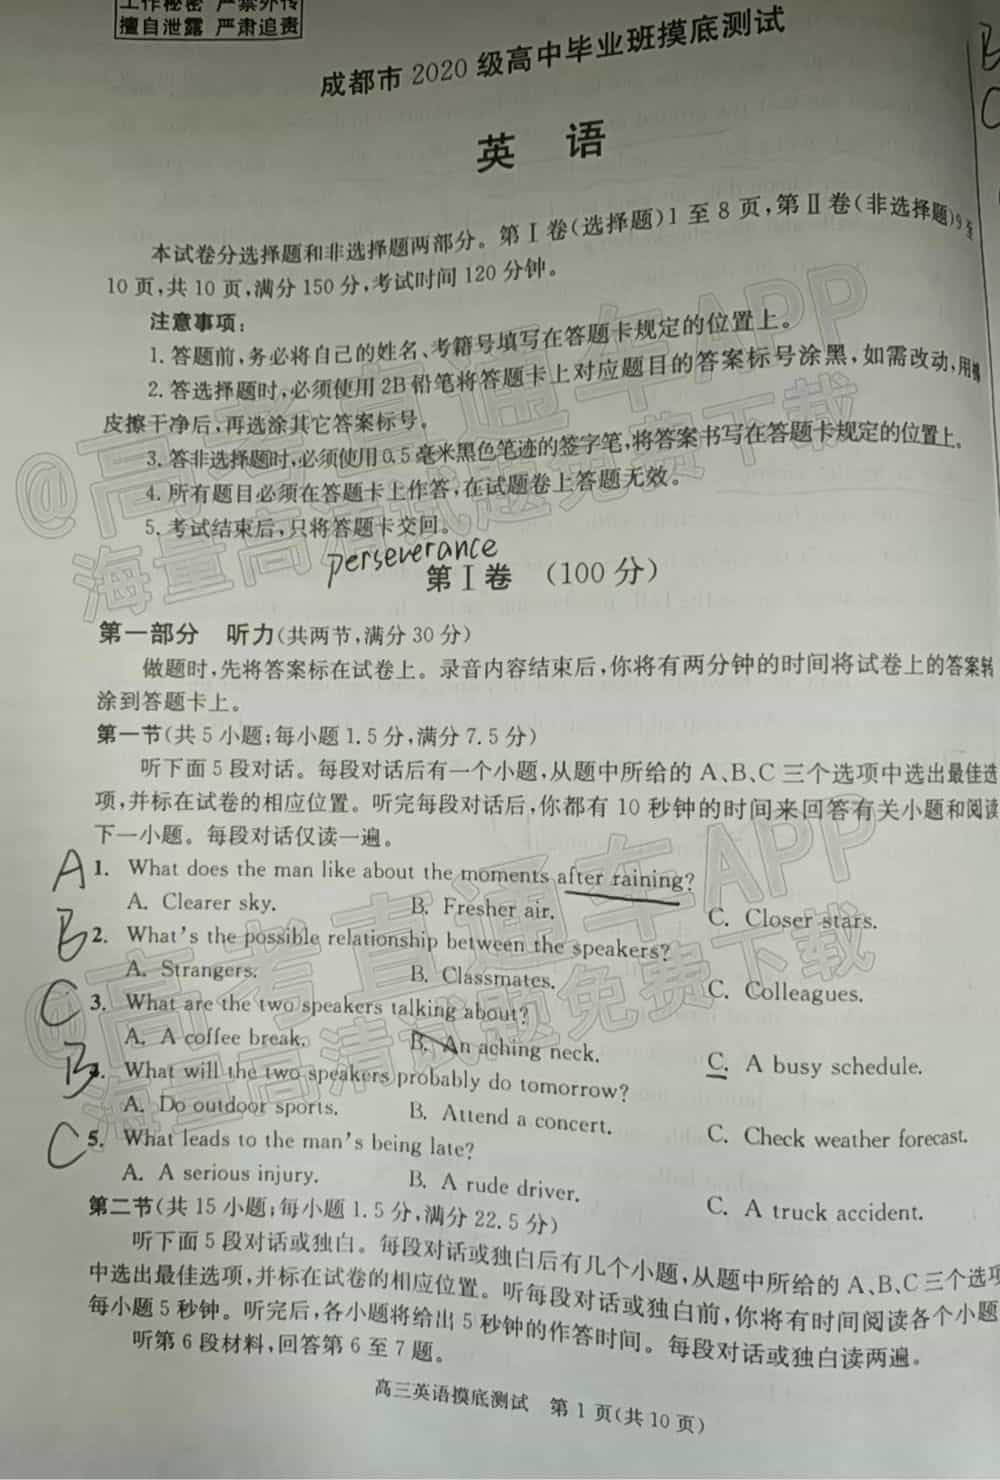 工作秘密 严禁外传
擅自泄露 严肃追责
成都市 2020 级高中毕业班摸底测试
英 语
本试卷分选择题和非选择题两部分。第Ⅰ卷(选择题)1 至 8 页,第Ⅱ卷(非选择题)9 至
10 页,共 10 页,满分 150 分,考试时间 120 分钟。
注意事项:
1. 答题前,务必将自己的姓名、考籍号填写在答题卡规定的位置上。
2. 答选择题时,必须使用 2B 铅笔将答题卡上对应题目的答案标号涂黑,如需改动,用橡
皮擦干净后,再选涂其它答案标号。
3. 答非选择题时,必须使用 0.5 毫米黑色笔迹的签字笔,将答案书写在答题卡规定的位置上。
4. 所有题目必须在答题卡上作答,在试题卷上答题无效。
5. 考试结束后,只将答题卡交回。
perseverance
第Ⅰ卷 (100 分)
第一部分 听力(共两节,满分 30 分)
做题时,先将答案标在试卷上。录音内容结束后,你将有两分钟的时间将试卷上的答案转
涂到答题卡上。
第一节(共 5 小题;每小题 1.5 分,满分 7.5 分)
听下面 5 段对话。每段对话后有一个小题,从题中所给的 A、B、C 三个选项中选出最佳选
项,并标在试卷的相应位置。听完每段对话后,你都有 10 秒钟的时间来回答有关小题和阅读
下一小题。每段对话仅读一遍。
A 1. What does the man like about the moments after raining?
A. Clearer sky. B. Fresher air. C. Closer stars.
B 2. What's the possible relationship between the speakers?
A. Strangers. B. Classmates. C. Colleagues.
C 3. What are the two speakers talking about?
A. A coffee break. B. An aching neck. C. A busy schedule.
B 4. What will the two speakers probably do tomorrow?
A. Do outdoor sports. B. Attend a concert. C. Check weather forecast.
C 5. What leads to the man's being late?
A. A serious injury. B. A rude driver. C. A truck accident.
第二节(共 15 小题;每小题 1.5 分,满分 22.5 分)
听下面 5 段对话或独白。每段对话或独白后有几个小题,从题中所给的 A、B、C 三个选项
中选出最佳选项,并标在试卷的相应位置。听每段对话或独白前,你将有时间阅读各个小题
每小题 5 秒钟。听完后,各小题将给出 5 秒钟的作答时间。每段对话或独白读两遍。
听第 6 段材料,回答第 6 至 7 题。
高三英语摸底测试 第 1 页(共 10 页)
@高考直通车APP
海量高清试题免费下载
@高考直通车APP
海量高清试题免费下载
B
C